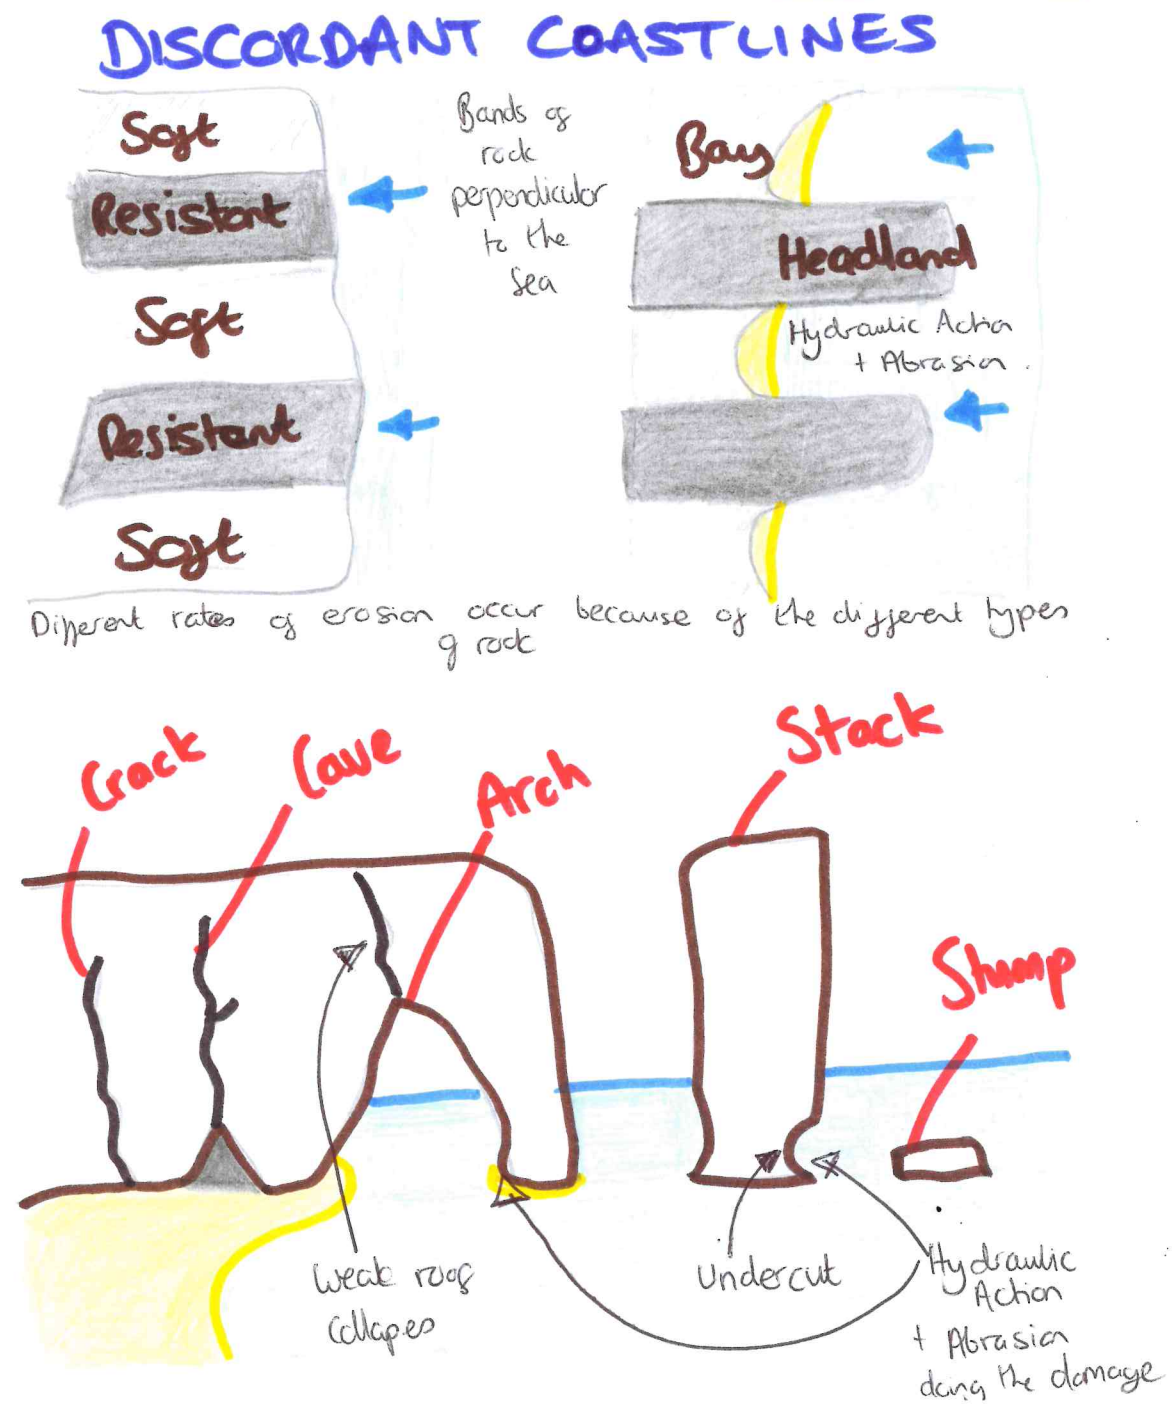 DISCORDANT COASTLINES
Soft
Resistant
Soft
Resistant
Soft
Bands of
rock
perpendicular
to the
Sea
Bay
Headland
Hydraulic Action
+ Abrasion.
Different rates of erosion occur because of the different types
of rock
Crack
Cave
Arch
Stack
Stump
Weak roof
Collapes
Undercut
Hydraulic
Action
+ Abrasion
doing the damage